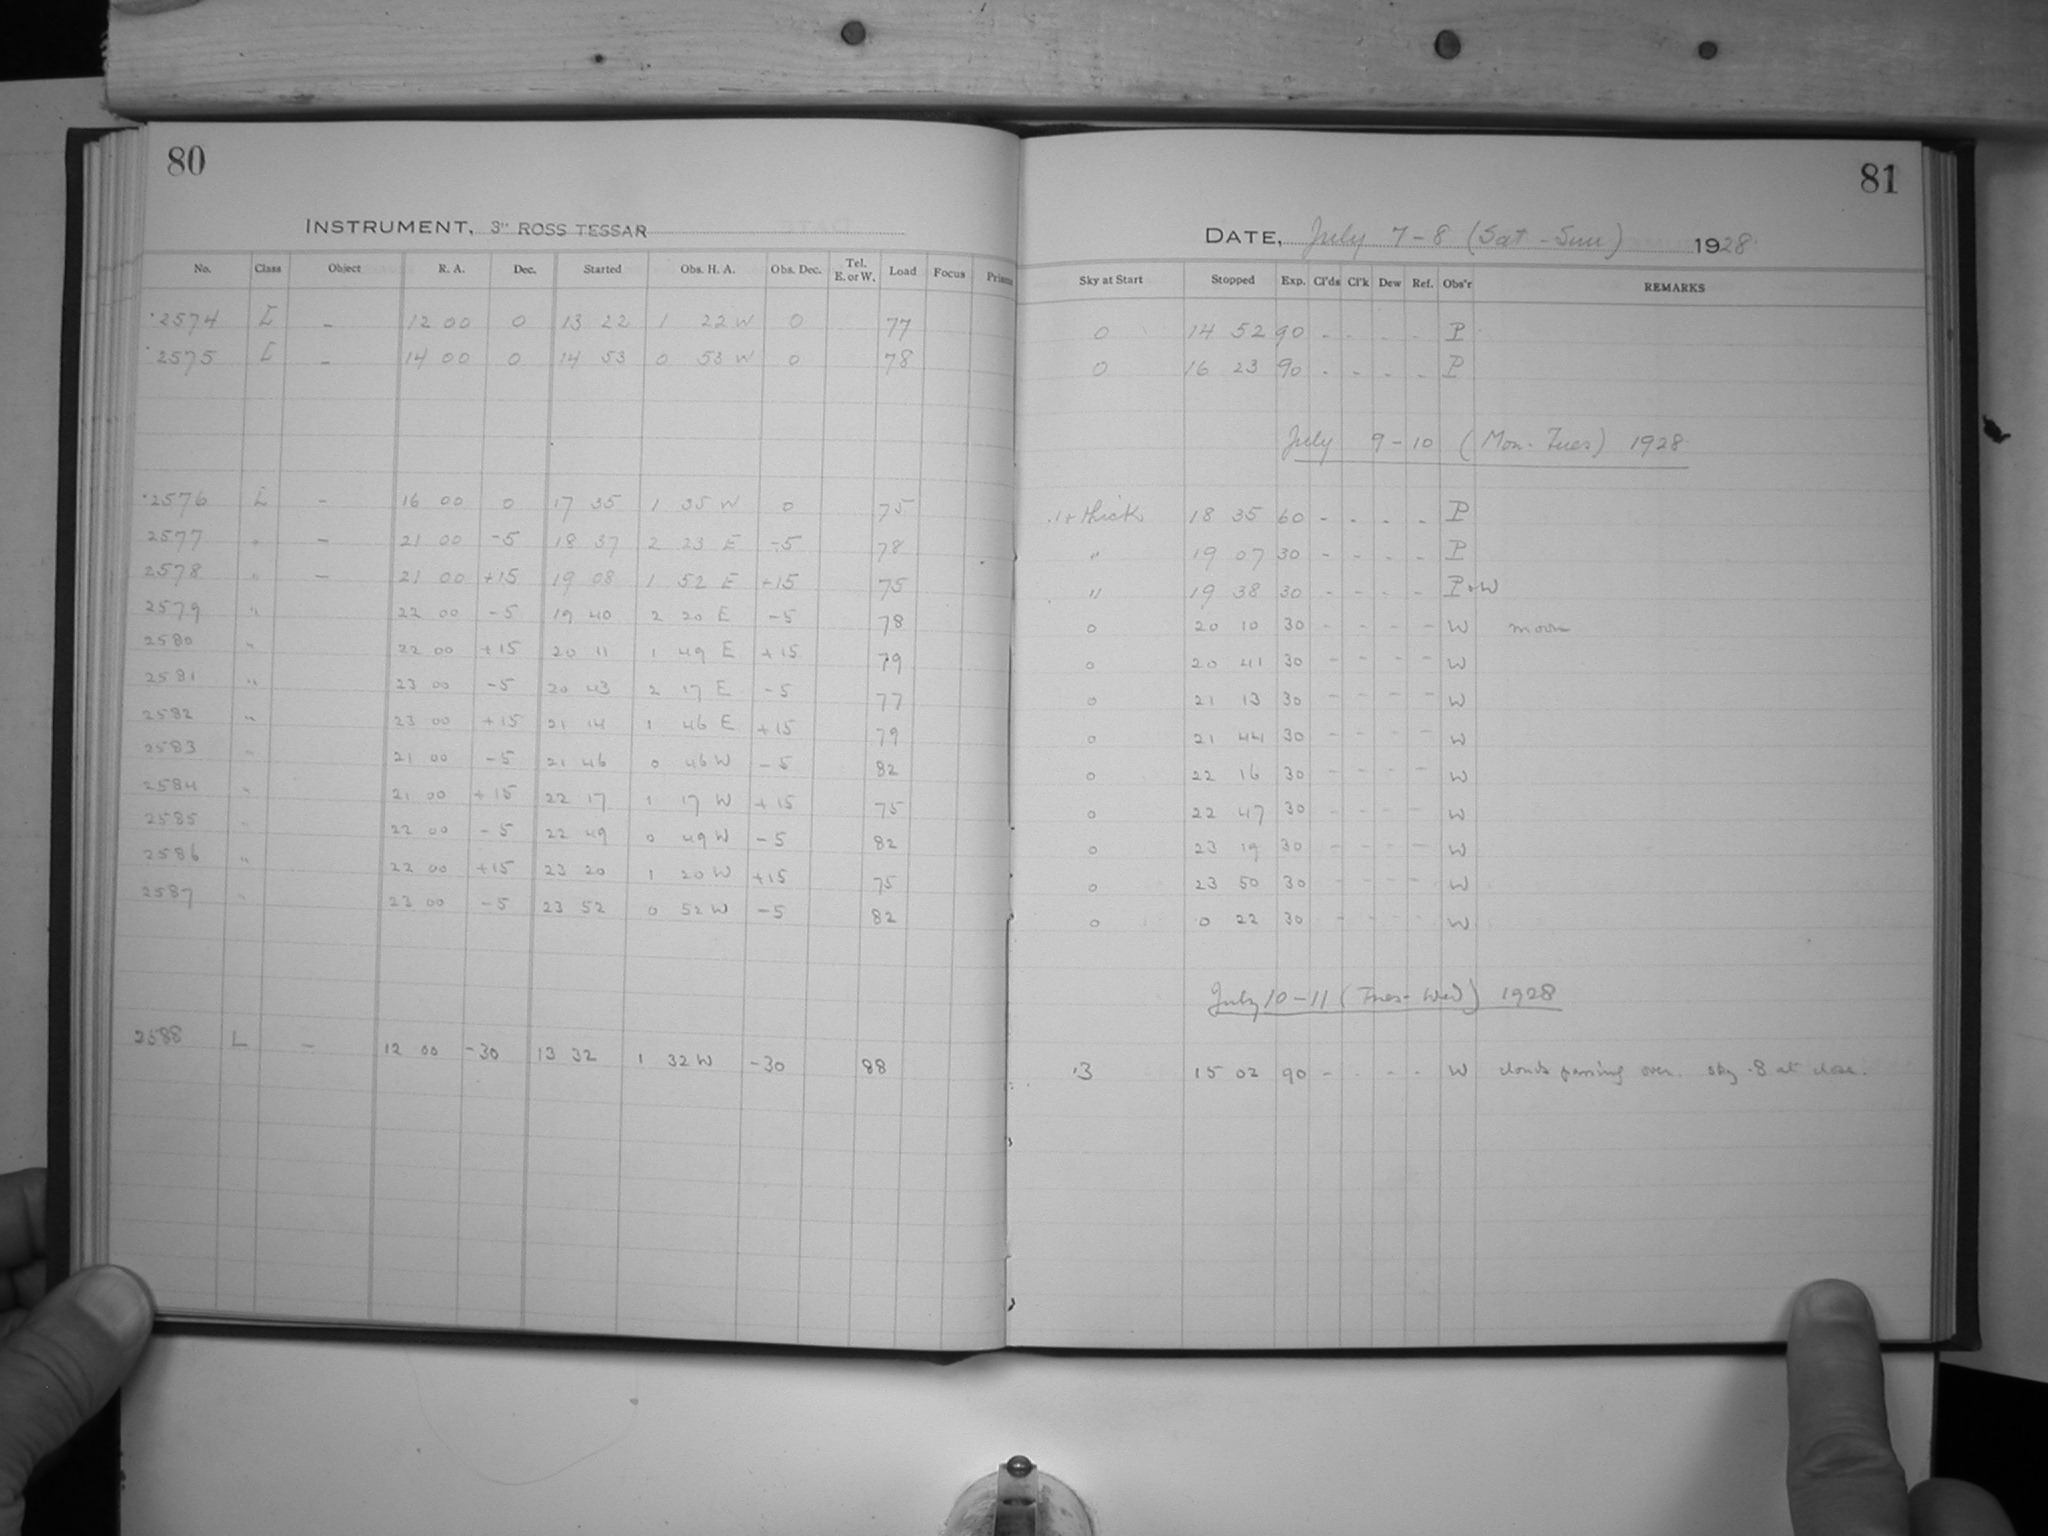 80
INSTRUMENT, 3" ROSS TESSAR
No. Class Object R. A. Dec. Started Obs. H. A. Obs. Dec. Tel. E. or W. Load Focus Prisms
2574 L - 12 00 0 13 22 1 22 W 0 77
2575 L - 14 00 0 14 53 0 53 W 0 78
2576 L - 16 00 0 17 35 1 35 W 0 75
2577 " - 21 00 -5 18 37 2 23 E -5 78
2578 " - 21 00 +15 19 08 1 52 E +15 75
2579 " 22 00 -5 19 40 2 20 E -5 78
2580 " 22 00 +15 20 11 1 49 E +15 79
2581 " 23 00 -5 20 43 2 17 E -5 77
2582 " 23 00 +15 21 14 1 46 E +15 79
2583 " 21 00 -5 21 46 0 46 W -5 82
2584 " 21 00 +15 22 17 1 17 W +15 75
2585 " 22 00 -5 22 49 0 49 W -5 82
2586 " 22 00 +15 23 20 1 20 W +15 75
2587 " 23 00 -5 23 52 0 52 W -5 82
2588 L - 12 00 -30 13 32 1 32 W -30 88
81
DATE, July 7-8 (Sat - Sun) 1928
Sky at Start Stopped Exp. Cl'ds Cl'k Dew Ref. Obs'r REMARKS
0 14 52 90 - - - - P
0 16 23 90 - - - - P
July 9-10 (Mon-Tues) 1928
.1+ thick 18 35 60 - - - - P
" 19 07 30 - - - - P
" 19 38 30 - - - - P+W
0 20 10 30 - - - - W moon
0 20 41 30 - - - - W
0 21 13 30 - - - - W
0 21 44 30 - - - - W
0 22 16 30 - - - - W
0 22 47 30 - - - - W
0 23 19 30 - - - - W
0 23 50 30 - - - - W
0 0 22 30 - - - - W
July 10-11 (Tues-Wed) 1928
.3 15 02 90 - - - - W clouds passing over. sky .8 at close.